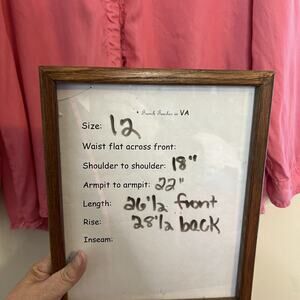 in VA
Size: 12
Waist flat across front:
Shoulder to shoulder: 18"
Armpit to armpit: 22"
Length: 26 1/2 front
Rise: 28 1/2 back
Inseam: